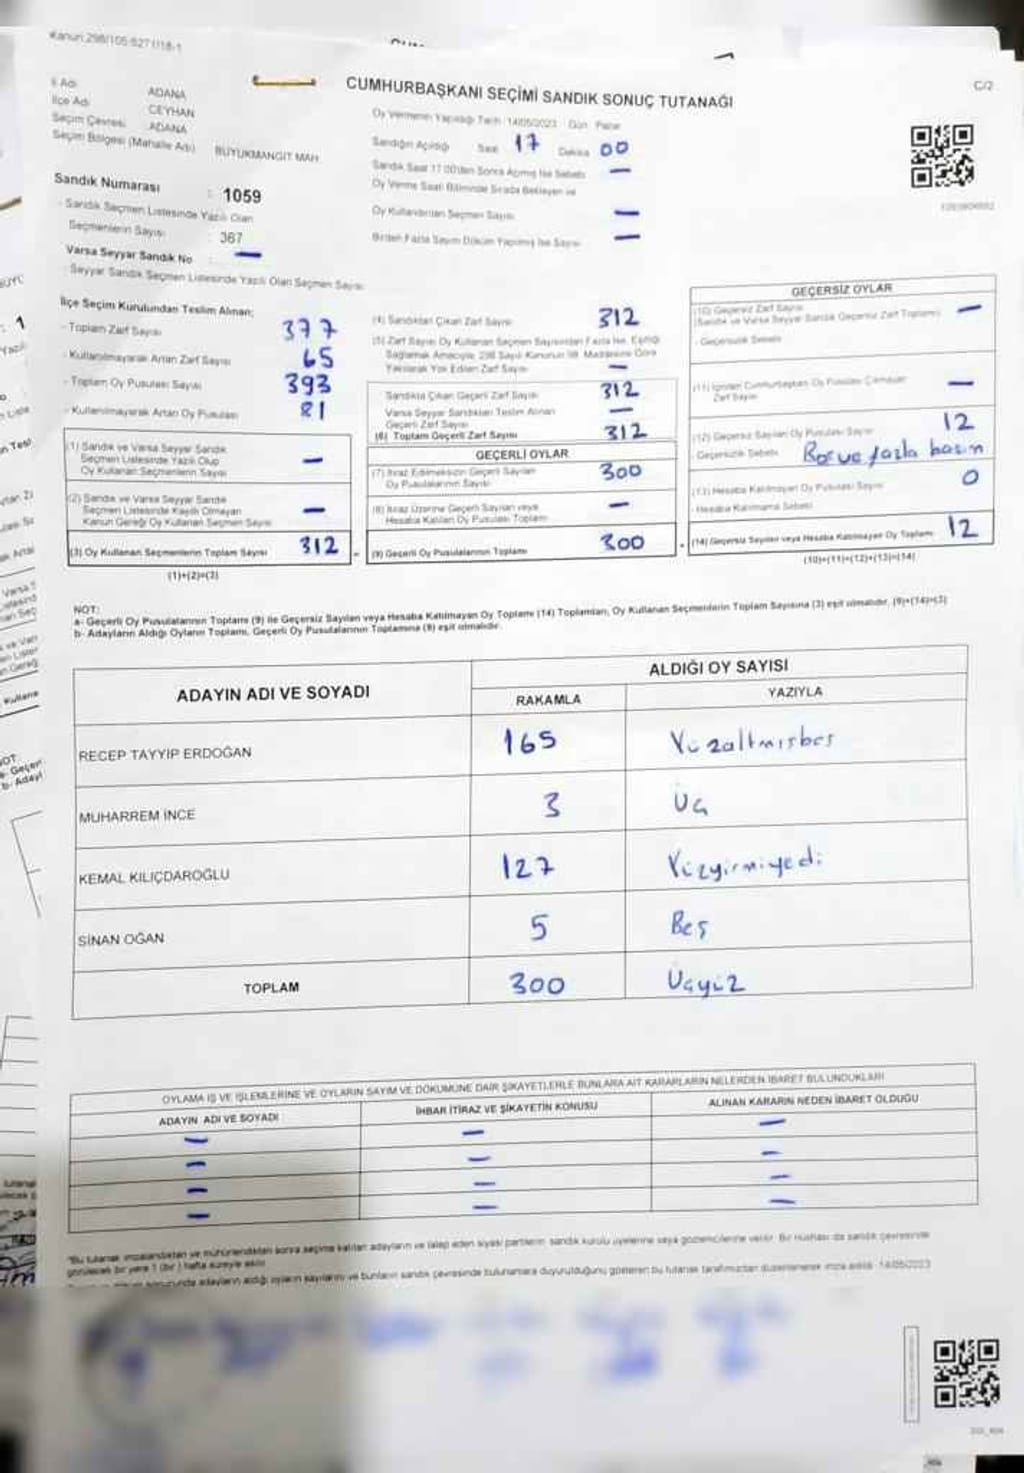 Kanun:298/105-527 I/18-1
C/2
CUMHURBAŞKANI SEÇİMİ SANDIK SONUÇ TUTANAĞI
İl Adı ADANA
İlçe Adı CEYHAN
Seçim Çevresi ADANA
Seçim Bölgesi (Mahalle Adı) BÜYÜKMANGIT MAH.
Sandık Numarası : 1059
- Sandık Seçmen Listesinde Yazılı Olan
Seçmenlerin Sayısı : 367
Varsa Seyyar Sandık No : —
- Seyyar Sandık Seçmen Listesinde Yazılı Olan Seçmen Sayısı
Oy Vermenin Yapıldığı Tarih :14/05/2023 Gün: Pazar
Sandığın Açıldığı Saat 17 Dakika 00
Sandık Saat 17.00'den Sonra Açılmış İse Sebebi —
Oy Verme Saati Bitiminde Sırada Bekleyen ve
Oy Kullandırılan Seçmen Sayısı —
Birden Fazla Sayım Döküm Yapılmış İse Sayısı —
İlçe Seçim Kurulundan Teslim Alınan;
- Toplam Zarf Sayısı 377
- Kullanılmayarak Artan Zarf Sayısı 65
- Toplam Oy Pusulası Sayısı 393
- Kullanılmayarak Artan Oy Pusulası 81
(1) Sandık ve Varsa Seyyar Sandık
Seçmen Listesinde Yazılı Olup
Oy Kullanan Seçmenlerin Sayısı —
(2) Sandık ve Varsa Seyyar Sandık
Seçmen Listesinde Kayıtlı Olmayan
Kanun Gereği Oy Kullanan Seçmen Sayısı —
(3) Oy Kullanan Seçmenlerin Toplam Sayısı 312
(1)+(2)=(3)
(4) Sandıktan Çıkan Zarf Sayısı 312
(5) Zarf Sayısı Oy Kullanan Seçmen Sayısından Fazla İse, Eşitliği
Sağlamak Amacıyla, 298 Sayılı Kanunun 98. Maddesine Göre
Yakılarak Yok Edilen Zarf Sayısı —
Sandıkta Çıkan Geçerli Zarf Sayısı 312
Varsa Seyyar Sandıktan Teslim Alınan
Geçerli Zarf Sayısı —
(6) Toplam Geçerli Zarf Sayısı 312
GEÇERLİ OYLAR
(7) İtiraz Edilmeksizin Geçerli Sayılan
Oy Pusulalarının Sayısı 300
(8) İtiraz Üzerine Geçerli Sayılan veya
Hesaba Katılan Oy Pusulası Toplamı —
(9) Geçerli Oy Pusulalarının Toplamı 300
GEÇERSİZ OYLAR
(10) Geçersiz Zarf Sayısı
(Sandık ve Varsa Seyyar Sandık Geçersiz Zarf Toplamı) —
- Geçersizlik Sebebi
(11) İçinden Cumhurbaşkanı Oy Pusulası Çıkmayan
Zarf Sayısı —
(12) Geçersiz Sayılan Oy Pusulası Sayısı 12
- Geçersizlik Sebebi Boş ve fazla basım
(13) Hesaba Katılmayan Oy Pusulası Sayısı 0
- Hesaba Katılmama Sebebi
(14) Geçersiz Sayılan veya Hesaba Katılmayan Oy Toplamı 12
(10)+(11)+(12)+(13)=(14)
NOT:
a- Geçerli Oy Pusulalarının Toplamı (9) ile Geçersiz Sayılan veya Hesaba Katılmayan Oy Toplamı (14) Toplamları, Oy Kullanan Seçmenlerin Toplam Sayısına (3) eşit olmalıdır. (9)+(14)=(3)
b- Adayların Aldığı Oyların Toplamı, Geçerli Oy Pusulalarının Toplamına (9) eşit olmalıdır.
ADAYIN ADI VE SOYADI ALDIĞI OY SAYISI
RAKAMLA YAZIYLA
RECEP TAYYİP ERDOĞAN 165 Yüzaltmışbeş
MUHARREM İNCE 3 Üç
KEMAL KILIÇDAROĞLU 127 Yüzyirmiyedi
SİNAN OĞAN 5 Beş
TOPLAM 300 Üçyüz
OYLAMA İŞ VE İŞLEMLERİNE VE OYLARIN SAYIM VE DÖKÜMÜNE DAİR ŞİKAYETLERLE BUNLARA AİT KARARLARIN NELERDEN İBARET BULUNDUKLARI
ADAYIN ADI VE SOYADI İHBAR İTİRAZ VE ŞİKAYETİN KONUSU ALINAN KARARIN NEDEN İBARET OLDUĞU
— — —
— — —
— — —
— — —
"Bu tutanak imzalandıktan ve mühürlendikten sonra seçime katılan adayların ve talep eden siyasi partilerin sandık kurulu üyelerine veya gözlemcilerine verilir. Bir nüshası da sandık çevresinde
görülecek bir yere 1 (bir ) hafta süreyle asılır.
sonucunda adayların aldığı oyların sayılarını ve bunların sandık çevresinde bulunanlara duyurulduğunu gösteren bu tutanak tarafımızdan düzenlenerek imza edildi. 14/05/2023